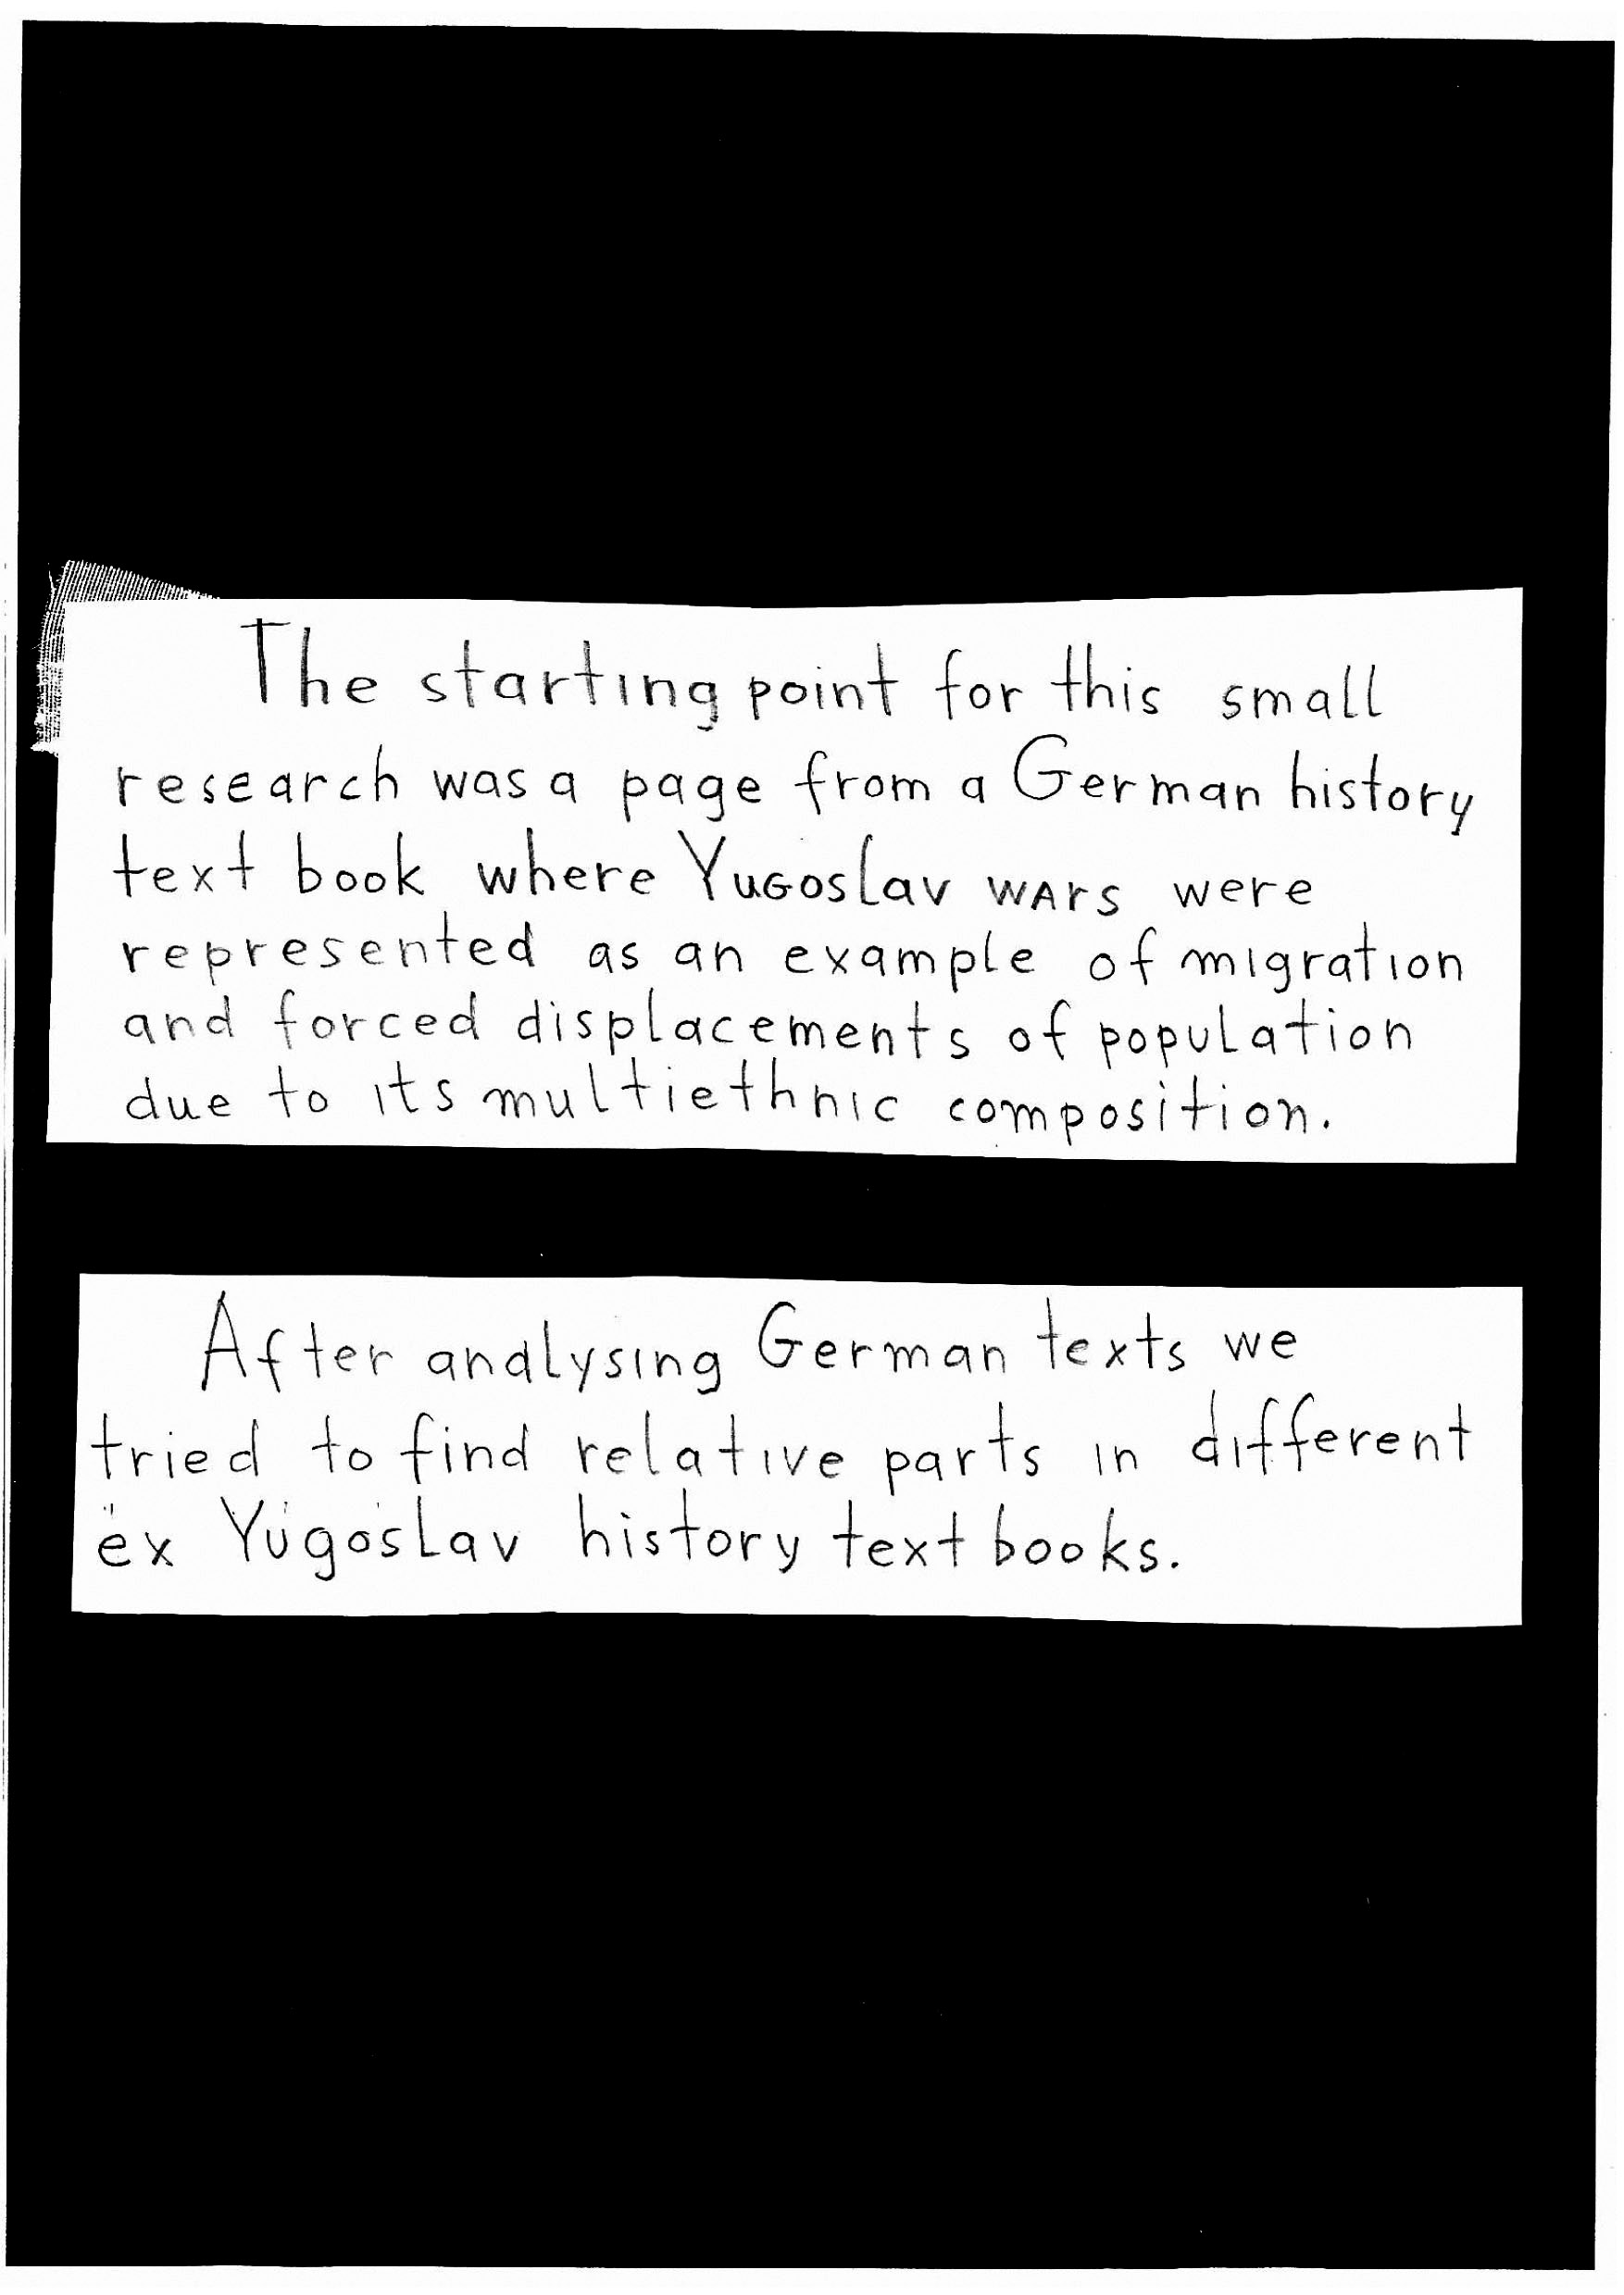 The starting point for this small
research was a page from a German history
text book where Yugoslav wars were
represented as an example of migration
and forced displacements of population
due to its multiethnic composition.
After analysing German texts we
tried to find relative parts in different
ex Yugoslav history text books.